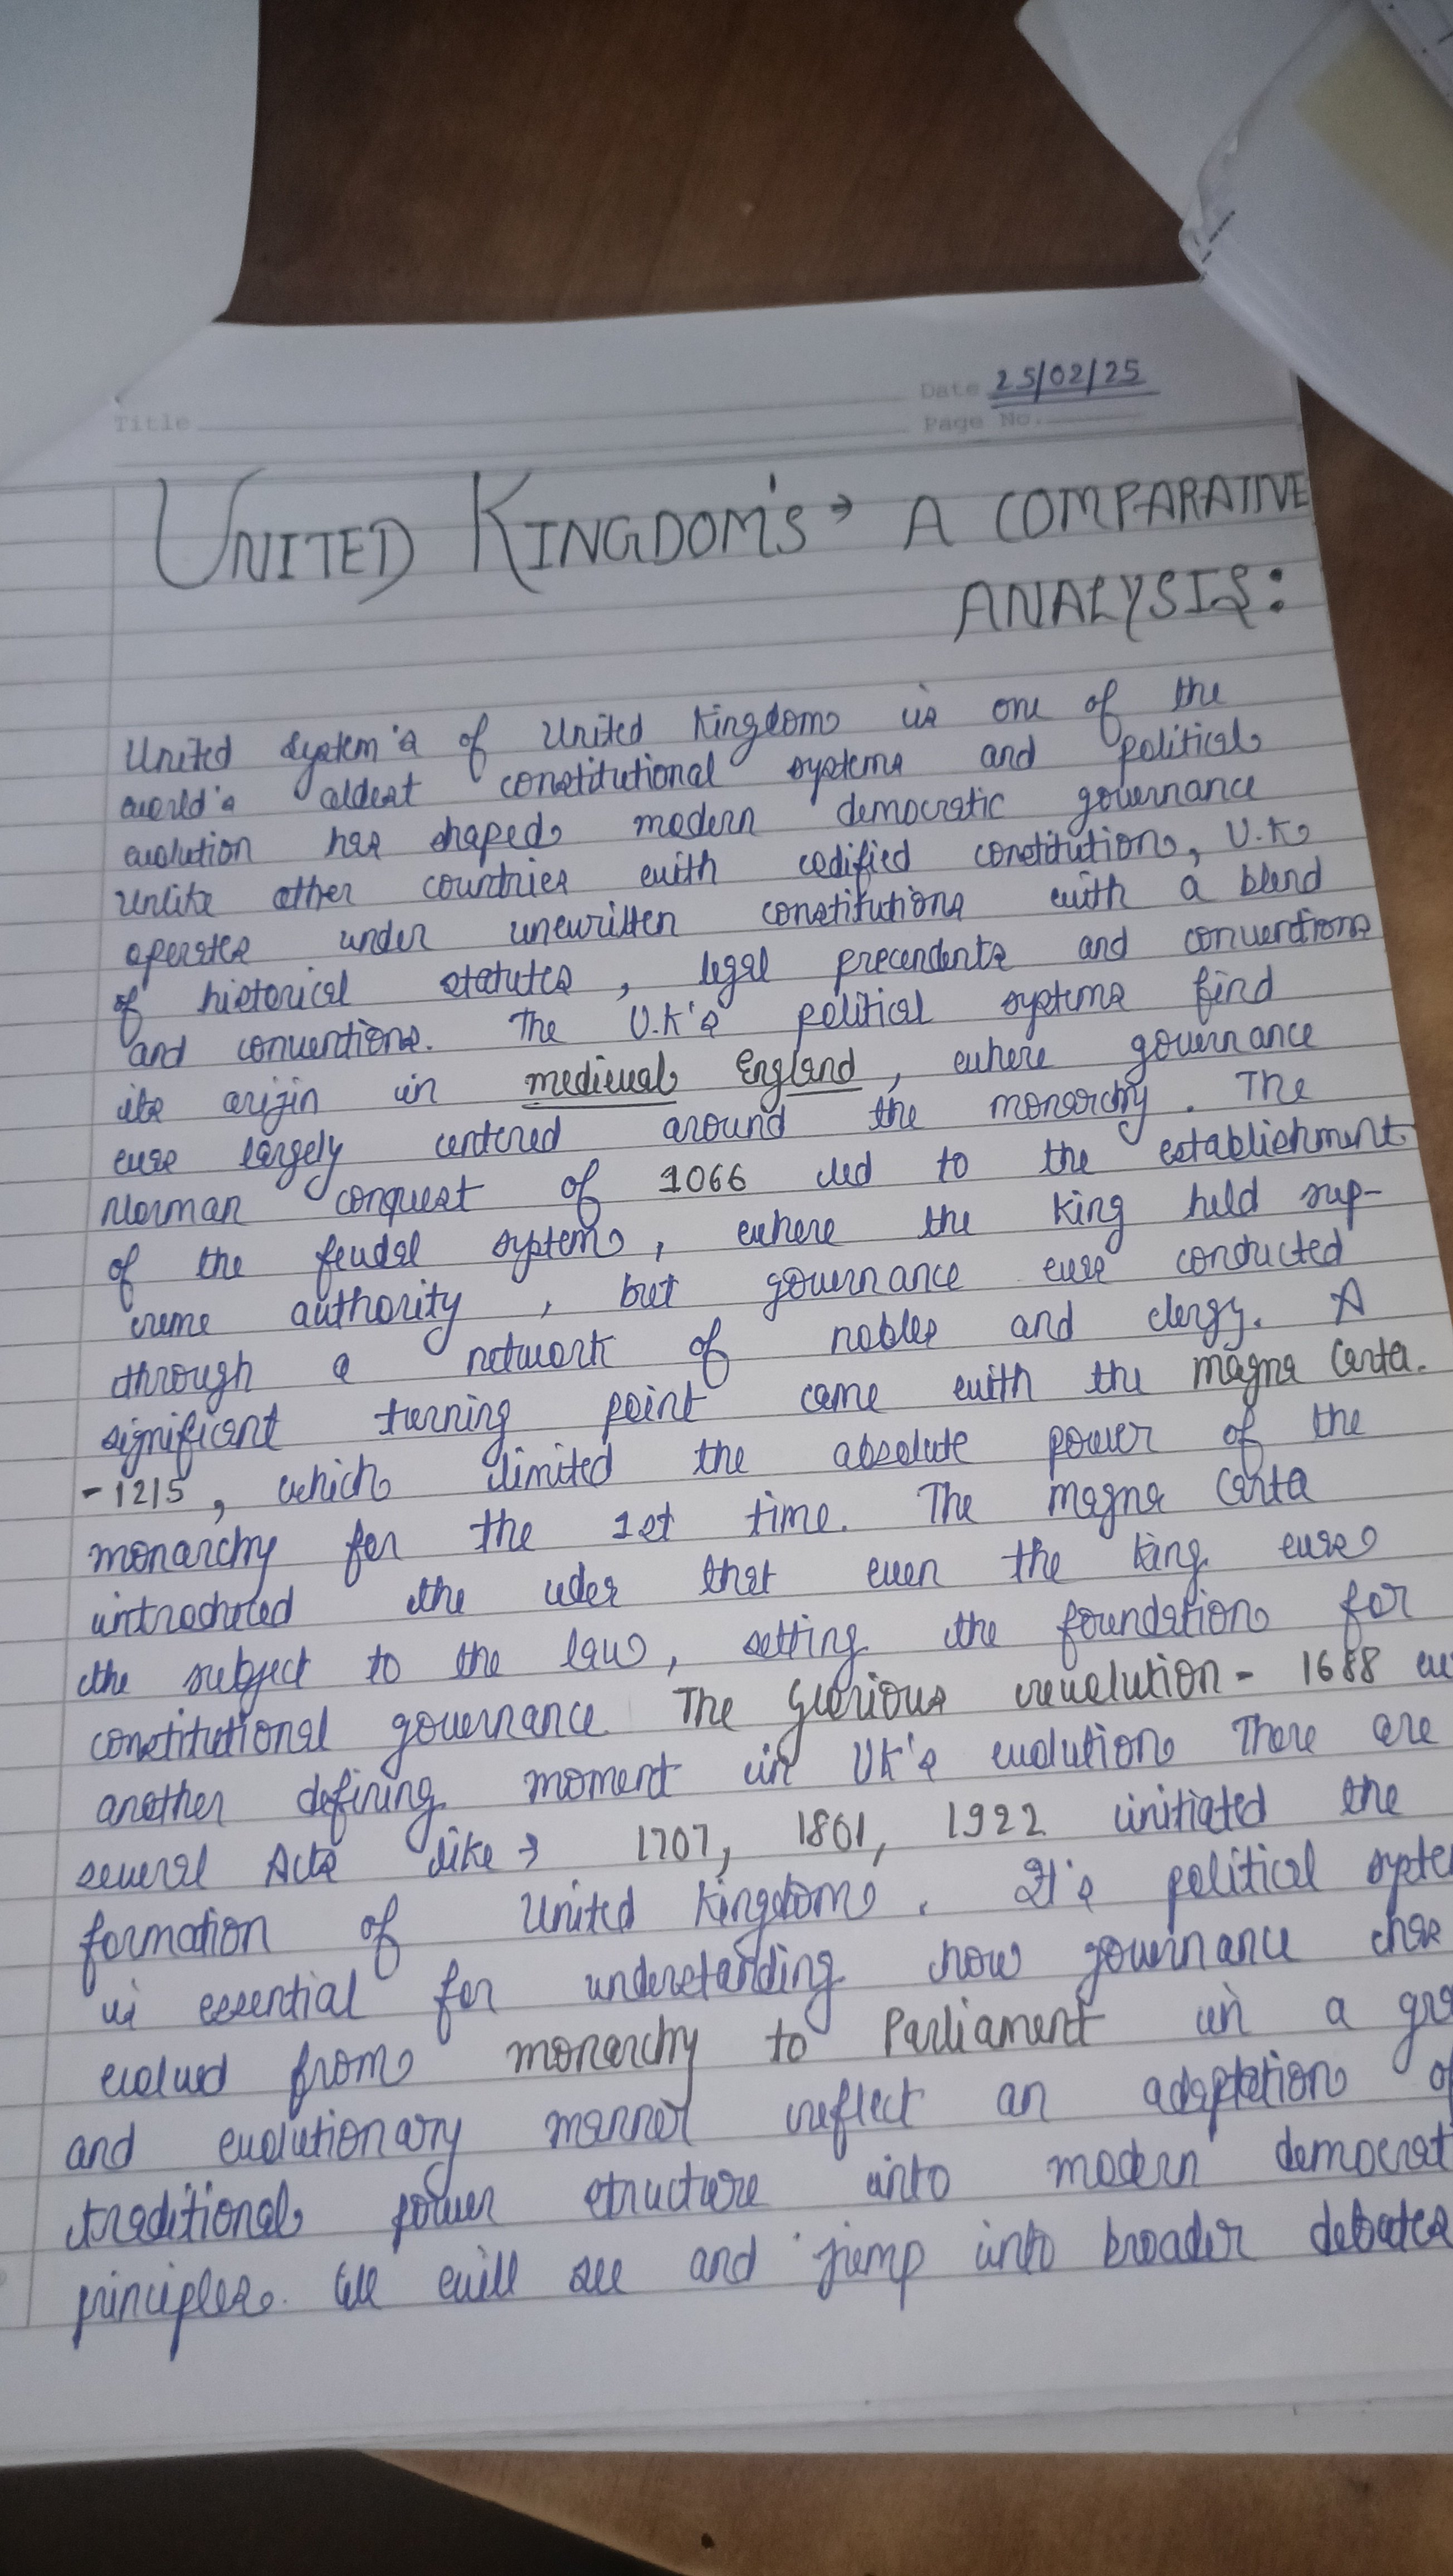 Title
Date 25/02/25
Page No.
UNITED KINGDOM'S → A COMPARATIVE
ANALYSIS:
United system's of United Kingdom is one of the
world's oldest constitutional systems and political
evolution has shaped modern democratic governance
Unlike other countries with codified constitution, U.K
operates under unwritten constitutions with a blend
of historical statutes, legal precendents and conventions
and conventions. The U.K's political systems find
its origin in medieval England, where governance
was largely centered around the monarchy. The
Norman conquest of 1066 led to the establishment
of the feudal system, where the king held sup-
reme authority, but governance was conducted
through a network of nobles and clergy. A
significant turning point came with the Magna Carta.
-1215, which limited the absolute power of the
monarchy for the 1st time. The Magna Carta
introducted the idea that even the king was
the subject to the law, setting the foundation for
constitutional governance. The Glorious revolution - 1688
another defining moment in UK's evolution There are
several Acts like → 1707, 1801, 1922 initiated the
formation of United Kingdom. It's political
is essential for understanding how governance
evolved from monarchy to Parliament in a
and evolutionary manner reflect an adaptation
traditional power structure into modern
principles. We will see and jump into broader debates